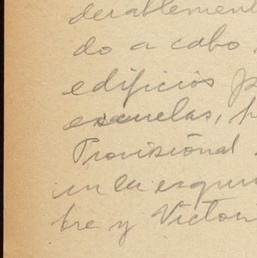 derablement
do a cabo
edificios p
escuelas, h
Provisional
en la esqui
bre y Victor